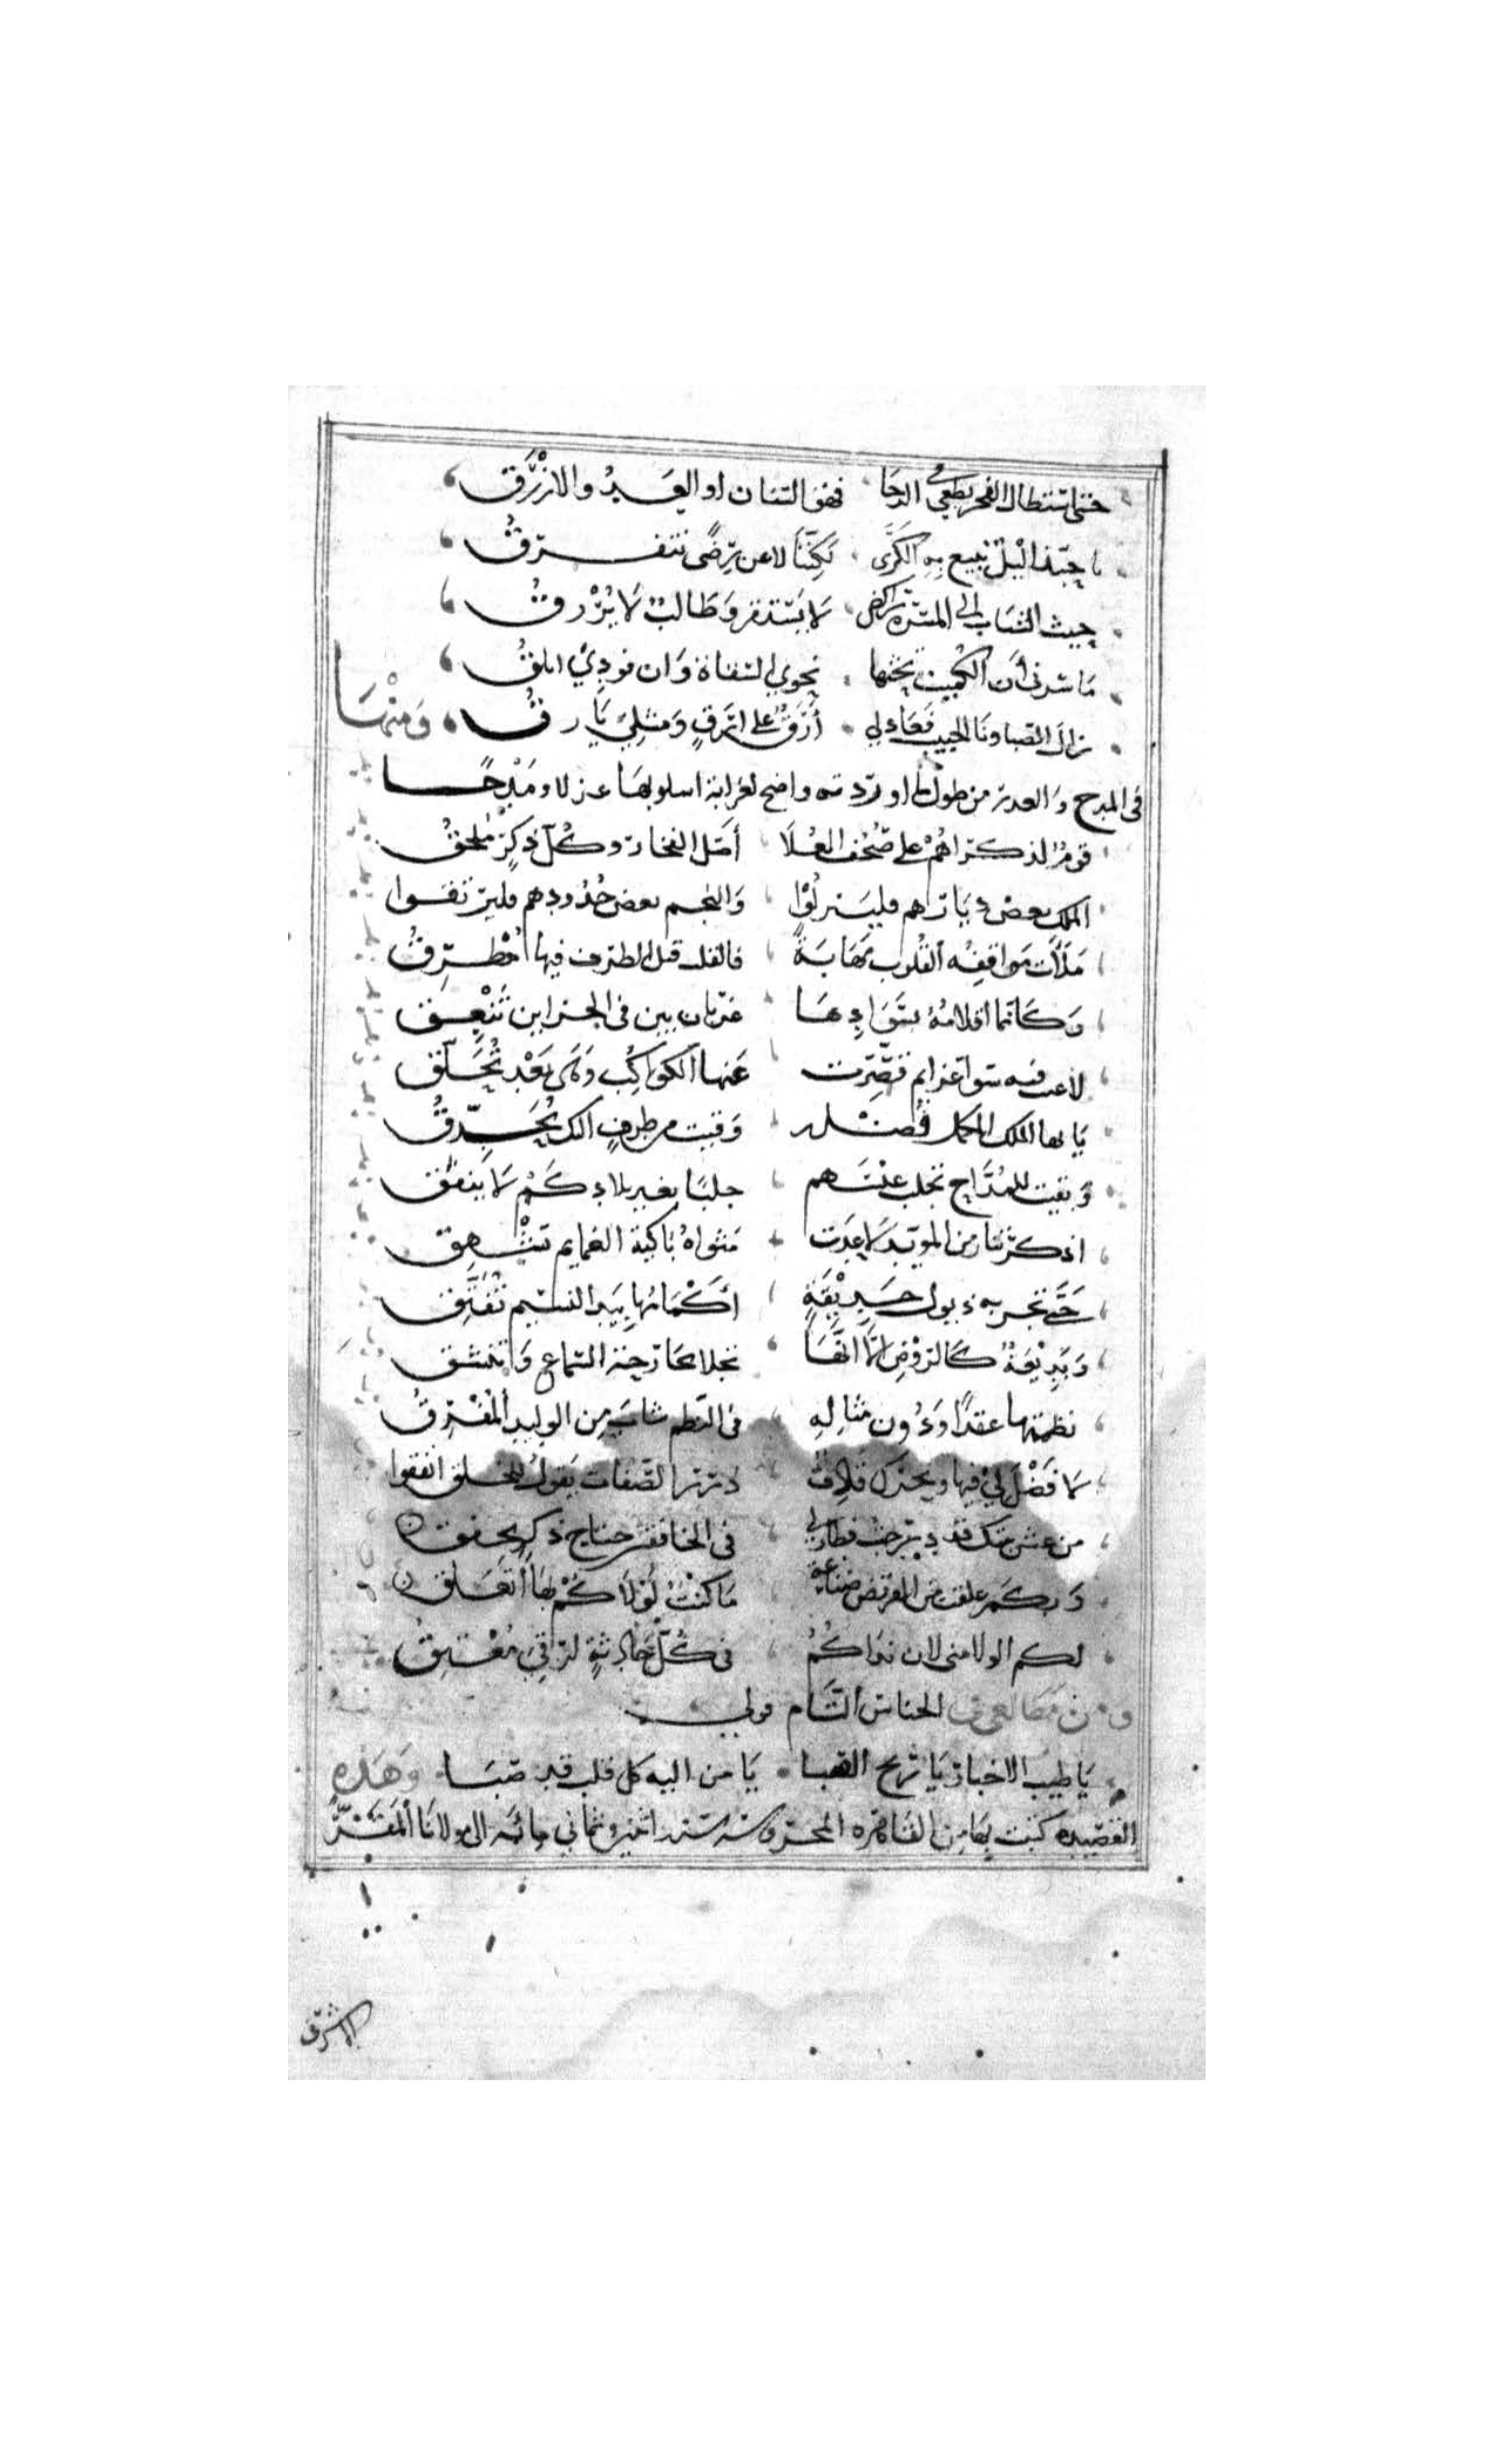 حتى استطال الفجر يطعن في الدجا فهو السنان او العدو الازرق
يا حبذا ليل نبيع به الكرى لكننا لا عن رضى نتفرق
حيث الشباب الى المسرة راكض لا يستقر وطالب لا يرزق
ما سرني أن الكميت يحثها نحوي السقاة وان فودي ابلق
زال الصبا ونأى الحبيب فعاد لي أرق على ارق ومثلي يأرق ومنها
في المدح والعدة من طولها اوردته واضح لغرابة اسلوبها غزلا ومدحا
قوم لذكراهم على صحف العلا أصل الفخار وكل ذكر ملحق
الملك بعض ديارهم فلينزلوا والنجم بعض جدودهم فليرتقوا
ملأت مواقفه القلوب مهابة فالقلب قبل الطرف فيها مطرق
وكأنما اقلامه بسوادها غربان بين في الخزاين تنعق
عنها الكواكب وهي بعد تحلق
يا ايها الملك المكمل فضله وقيت من طرف اليك يحدق
وبقيت للمداح تجلب عيشهم جلبا بغير بلادكم لا ينفق
اذكرتنا زمن المويد لا عدت مثواه باكية الغمايم تشهق
حتى تجر به ذيول حديقة أكمامها بيد النسيم تفتق
وبديعة كالروض إلا انها تجلا بحارحة السماع وتنشق
نظمتها عقدا ودون مثاله في النظم شاب من الوليد المفرق
لا فضل لي فيها وبحرك قاذف درر الصفات يقول للخلق انفقوا
من عش بيتك قد درجت فطار لي في الخافقين جناح ذكر يخفق
وبكم علقت من القريض صناعة ما كنت لولاكم بها أتعلق
لكم الولا مني لان نداكم في كل حادثة لرقي معتق
ومن مطالعي في الجناس التام قولي
يا طيب الاخبار يا ريح الصبا يا من اليه كل قلب قد صبا وهذه
القصيدة كتبت بها من القاهرة المحروسة سنة اثنين وثماني مائة الى مولانا المقر
الاشرف